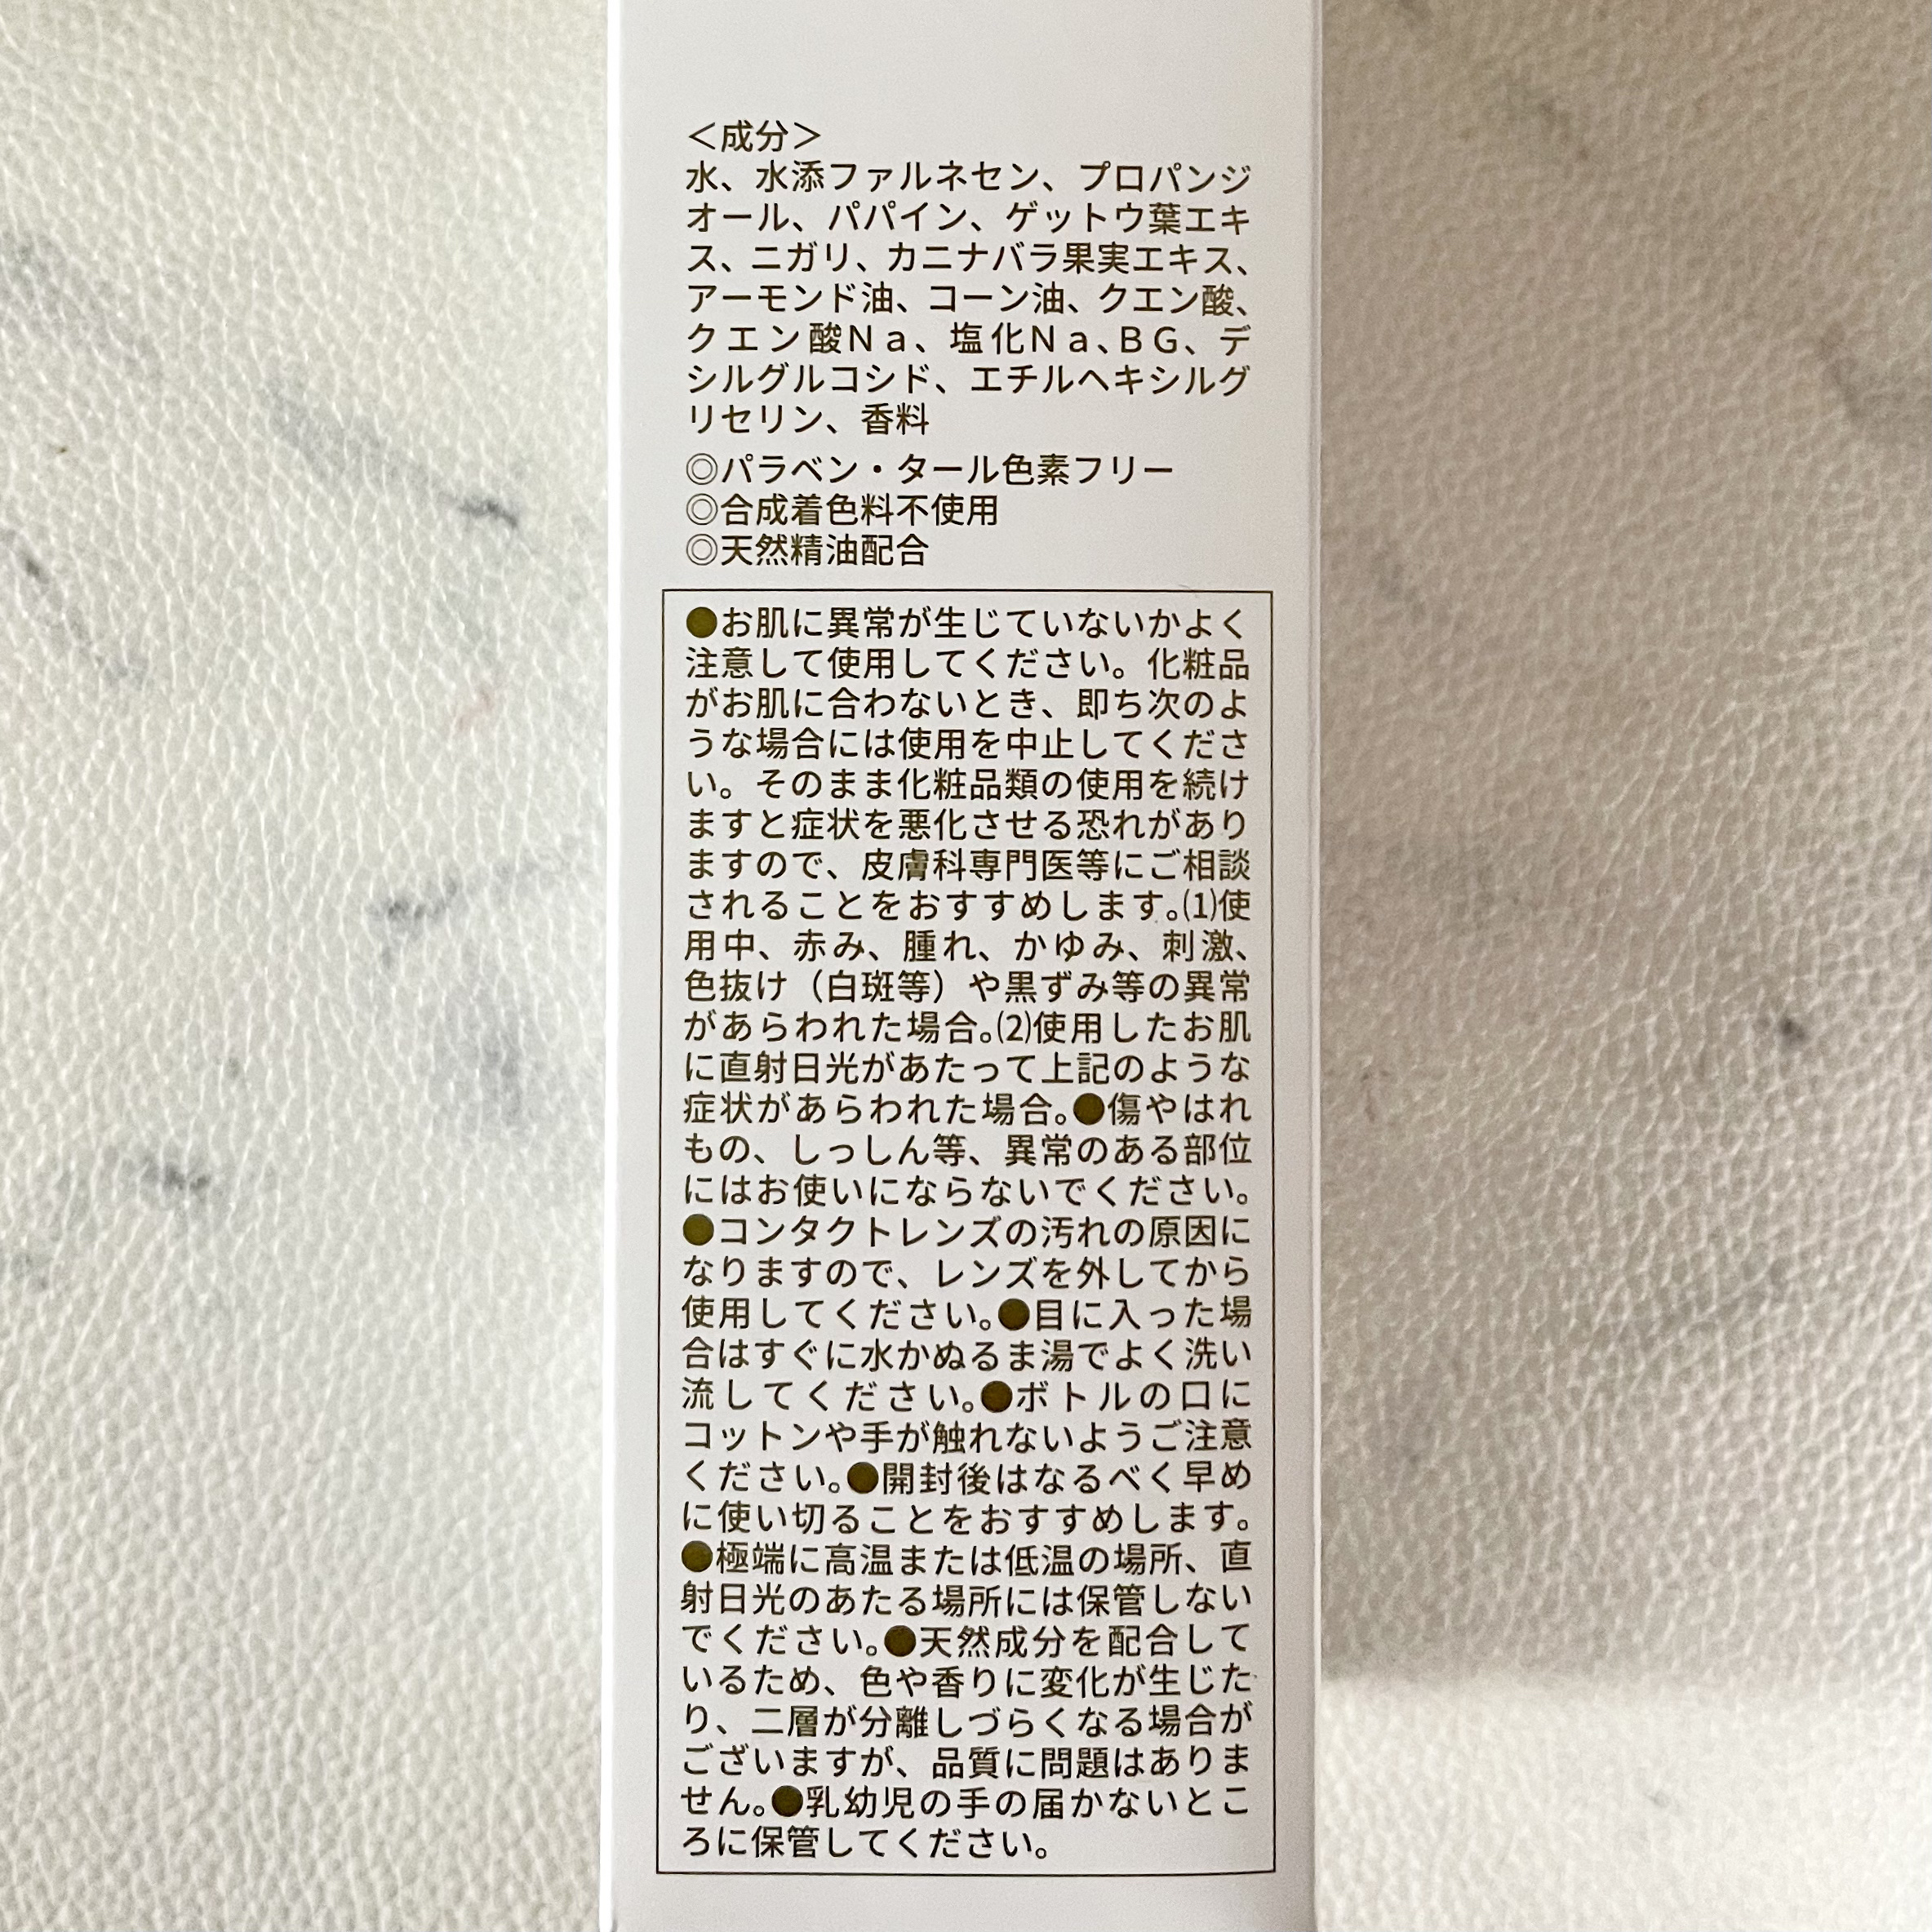 ＜成分＞
水、水添ファルネセン、プロパンジ
オール、パパイン、ゲットウ葉エキ
ス、ニガリ、カニナバラ果実エキス、
アーモンド油、コーン油、クエン酸、
クエン酸Ｎａ、塩化Ｎａ、ＢＧ、デ
シルグルコシド、エチルヘキシルグ
リセリン、香料
◎パラベン・タール色素フリー
◎合成着色料不使用
◎天然精油配合
●お肌に異常が生じていないかよく
注意して使用してください。化粧品
がお肌に合わないとき、即ち次のよ
うな場合には使用を中止してくださ
い。そのまま化粧品類の使用を続け
ますと症状を悪化させる恐れがあり
ますので、皮膚科専門医等にご相談
されることをおすすめします。⑴使
用中、赤み、腫れ、かゆみ、刺激、
色抜け（白斑等）や黒ずみ等の異常
があらわれた場合。⑵使用したお肌
に直射日光があたって上記のような
症状があらわれた場合。●傷やはれ
もの、しっしん等、異常のある部位
にはお使いにならないでください。
●コンタクトレンズの汚れの原因に
なりますので、レンズを外してから
使用してください。●目に入った場
合はすぐに水かぬるま湯でよく洗い
流してください。●ボトルの口に
コットンや手が触れないようご注意
ください。●開封後はなるべく早め
に使い切ることをおすすめします。
●極端に高温または低温の場所、直
射日光のあたる場所には保管しない
でください。●天然成分を配合して
いるため、色や香りに変化が生じた
り、二層が分離しづらくなる場合が
ございますが、品質に問題はありま
せん。●乳幼児の手の届かないとこ
ろに保管してください。